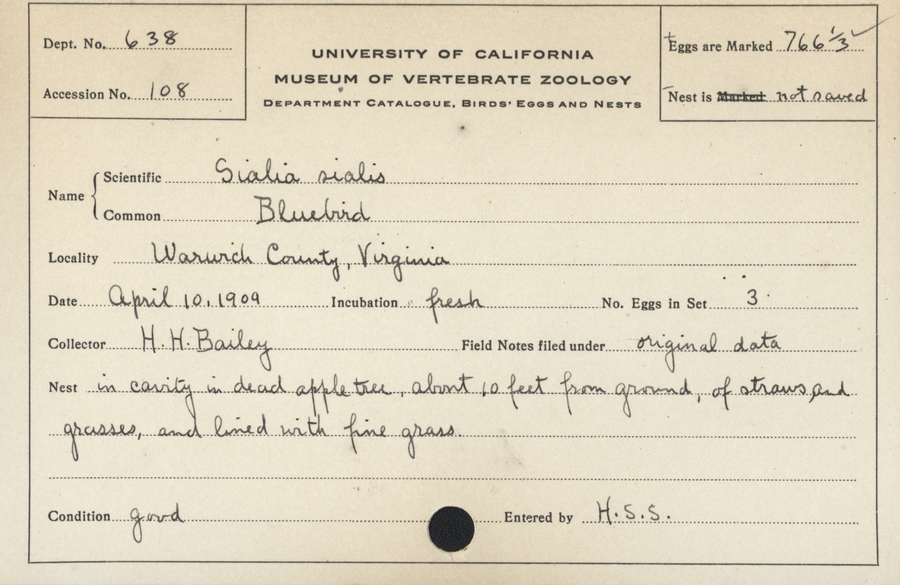 Dept. No. 638
Accession No. 108
UNIVERSITY OF CALIFORNIA
MUSEUM OF VERTEBRATE ZOOLOGY
DEPARTMENT CATALOGUE, BIRDS' EGGS AND NESTS
Eggs are Marked 766 1/3
Nest is Marked not saved
Name
Scientific Sialia sialis
Common Bluebird
Locality Warwich County, Virginia
Date April 10, 1909 Incubation fresh No. Eggs in Set 3
Collector H. H. Bailey Field Notes filed under original data
Nest in cavity in dead apple tree, about 10 feet from ground, of straws and
grasses, and lined with fine grass.
Condition good Entered by H. S. S.